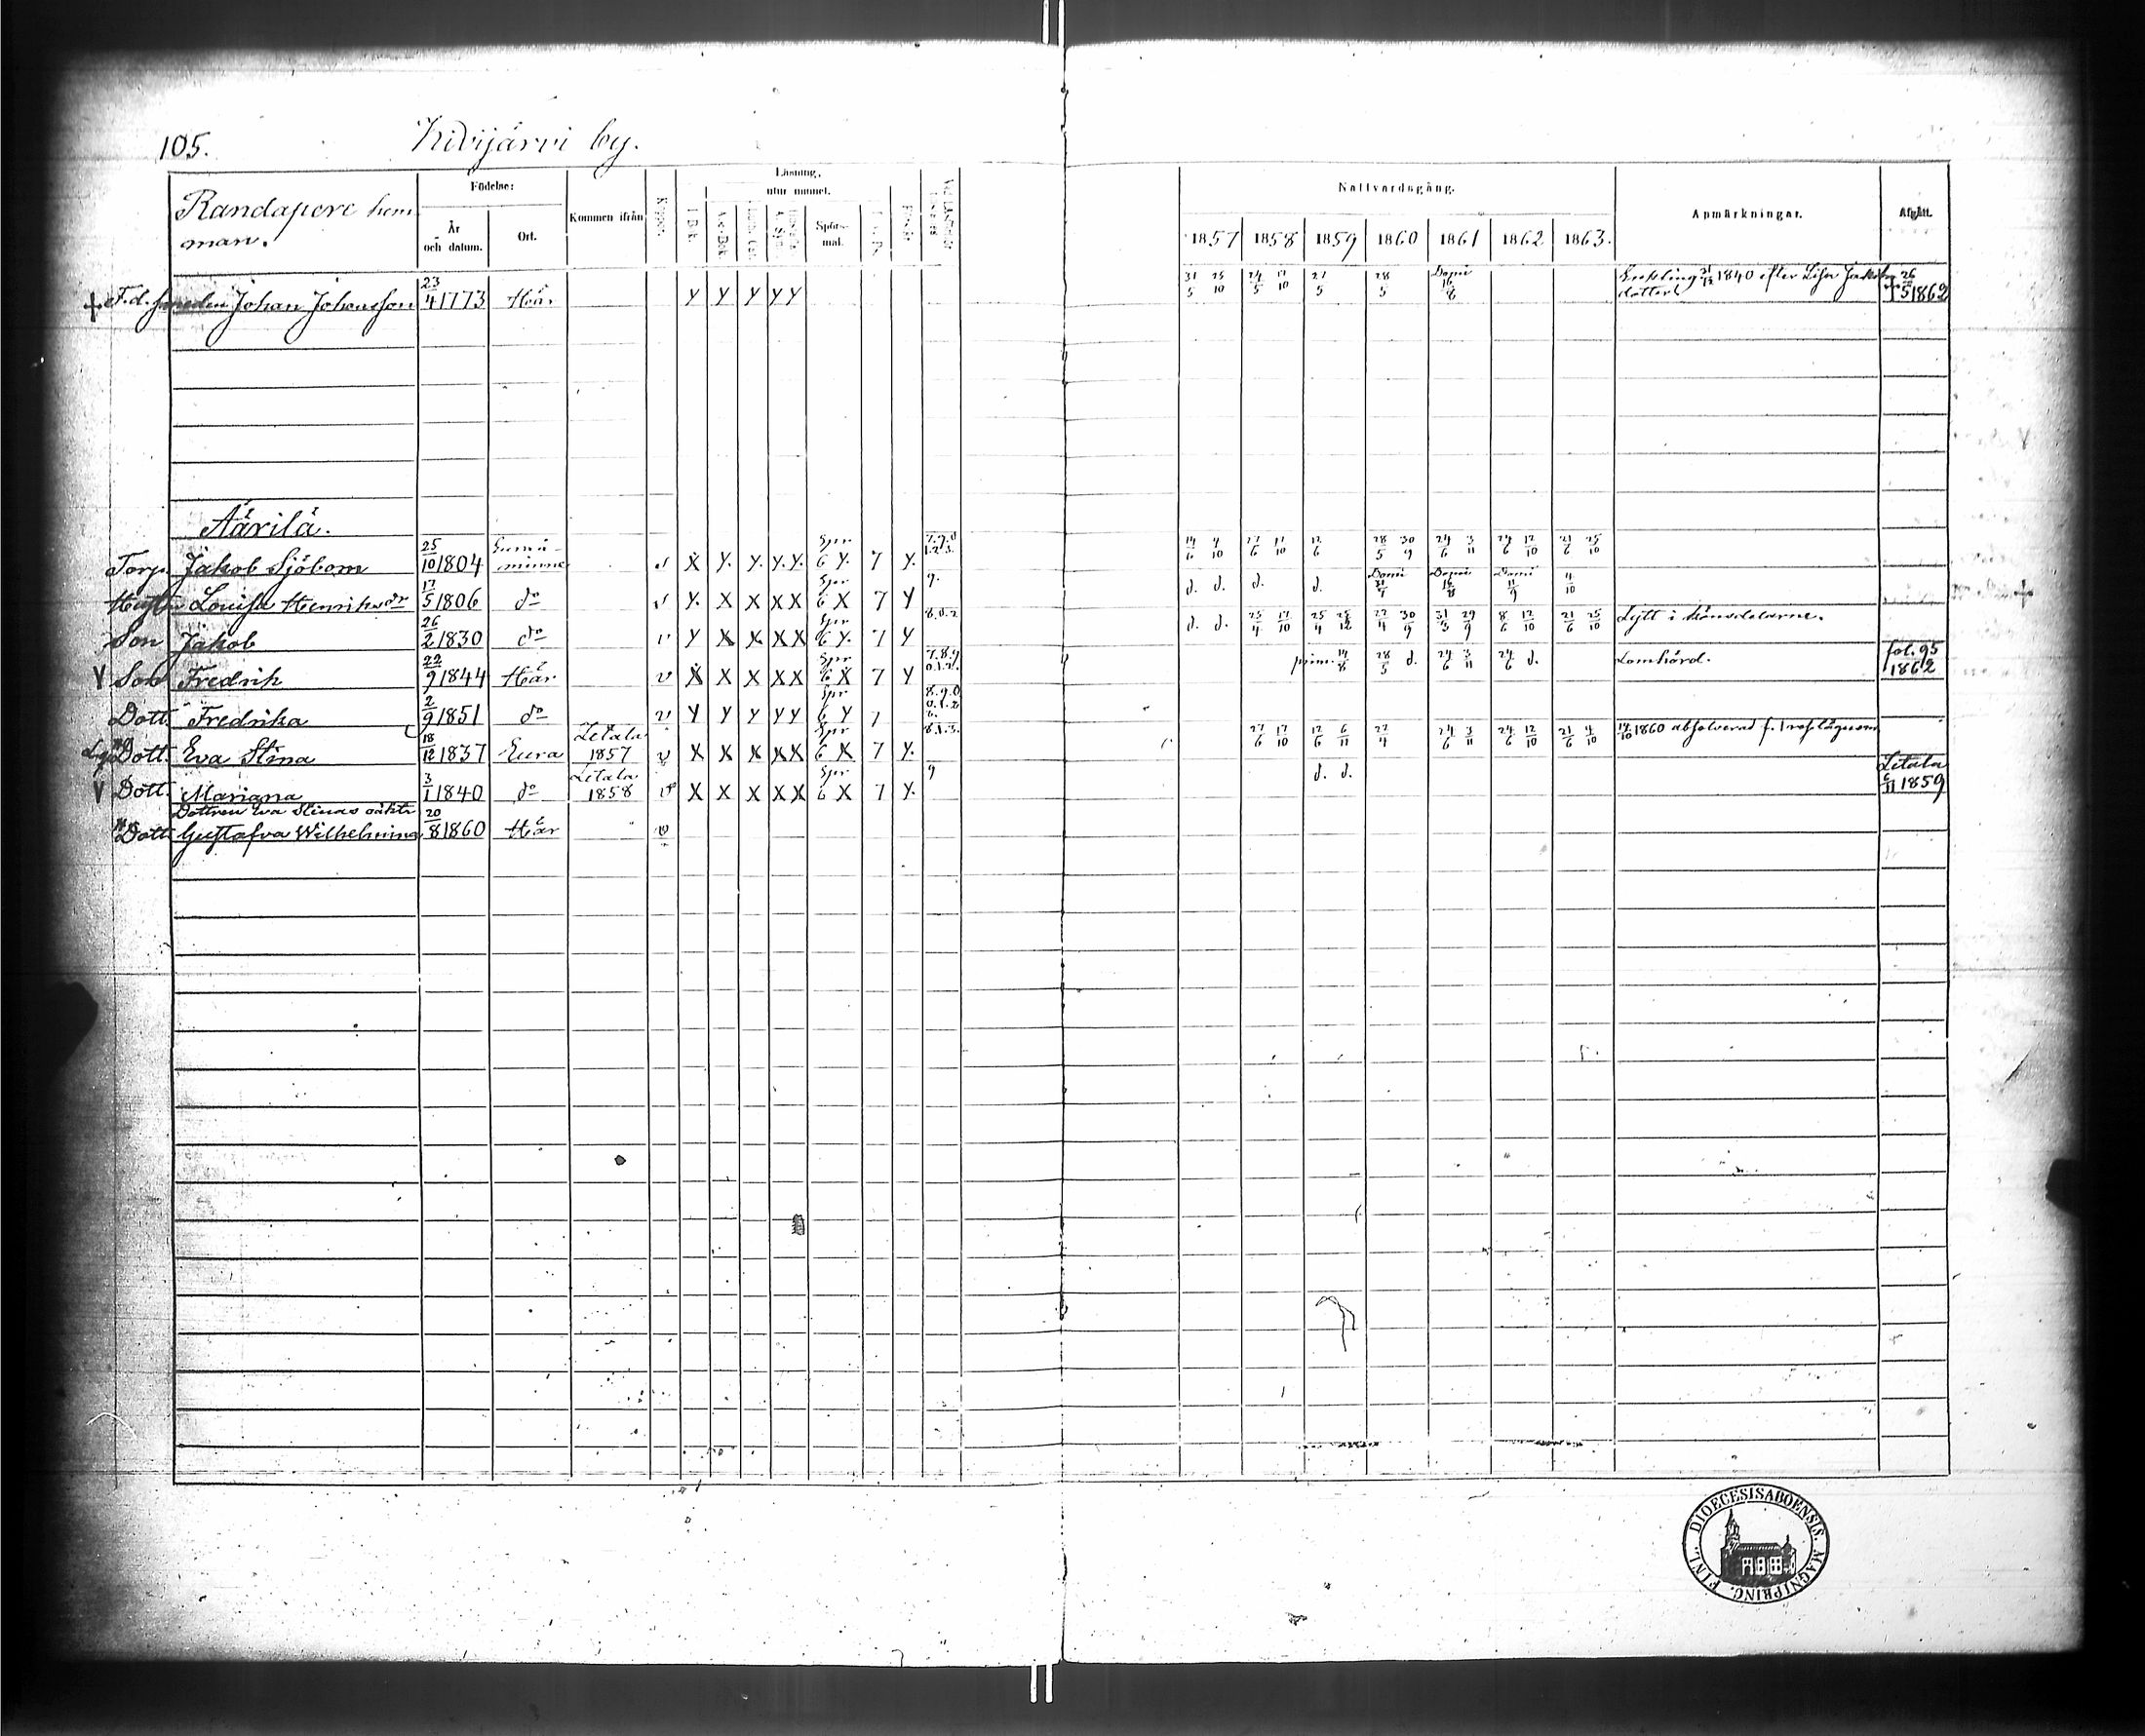 105. Kivijärvi by.
Randapere hem
man.
Födelse:
År
och datum.
Ort.
Kommen ifrån
Koppor.
Läsning,
utur minnet.
I Bok.
A.-c-Bok.
Spörs-
mål.
Nattvardsgång.
1857 1858 1859 1860 1861 1862 1863.
Anmärkningar.
Afgått.
+ F.d. smeden Johan Johansson 23/4 1773 Här y y y y y 31/5 25/10 24/5 17/10 27/5 28/5 Domi 16/8 Enkling 21/12 1840 efter Lisa Jakobs
dotter + 26/5 1862
Äärilä.
Torp. Jakob Sjöbom 25/10 1804 Eura-
minne X y. y. y. y. Spr 6 y. 7 y. 7.9.0
1.2.3. 14/6 4/10 27/6 17/10 12/6 28/5 30/9 24/6 3/11 24/6 12/10 21/6 25/10
Hustru Lovisa Henriksdr 17/5 1806 do y. X X X X Spr 6 X 7 y 9. d. d. d. d. Domi Domi 16/8 Domi 11/9 4/10
Son Jakob 26/2 1830 do y X X X X Spr 6 y. 7 y 8.0.2 d. d. 25/4 17/10 25/4 26/12 22/4 30/9 31/3 29/9 8/6 12/10 21/6 25/10 Lytt i könsdelarne.
V Son Fredrik 22/9 1844 Här v X X X X X Spr 6 X 7 y 7.8.9
0.1.2. prim. 14/8 28/5 d. 24/6 3/11 24/6 d. Lomhörd. fol. 95
1862
Dott. Fredrika 2/9 1851 do v y y y y y Spr 6 y 7 8.9.0
0.1.2
Dott. Eva Stina 18/12 1837 Eura Letala
1857 v X X X X X Spr 6 X 7 y. 8.1.3. 27/6 17/10 12/6 6/11 22/4 24/6 3/11 24/6 12/10 21/6 4/10 14/10 1860 absolverad f. 1 resa lägersm
V Dott. Mariana 3/1 1840 do Letala
1858 v X X X X X Spr 6 X 7 y. 9 d. d. Letala
6/11 1859
Dottren Eva Stinas oäkta
Dott. Gustafva Wilhelmina 20/8 1860 Här v
DIOECESIS ABOENSIS. MAGNI PRINC. FINL.